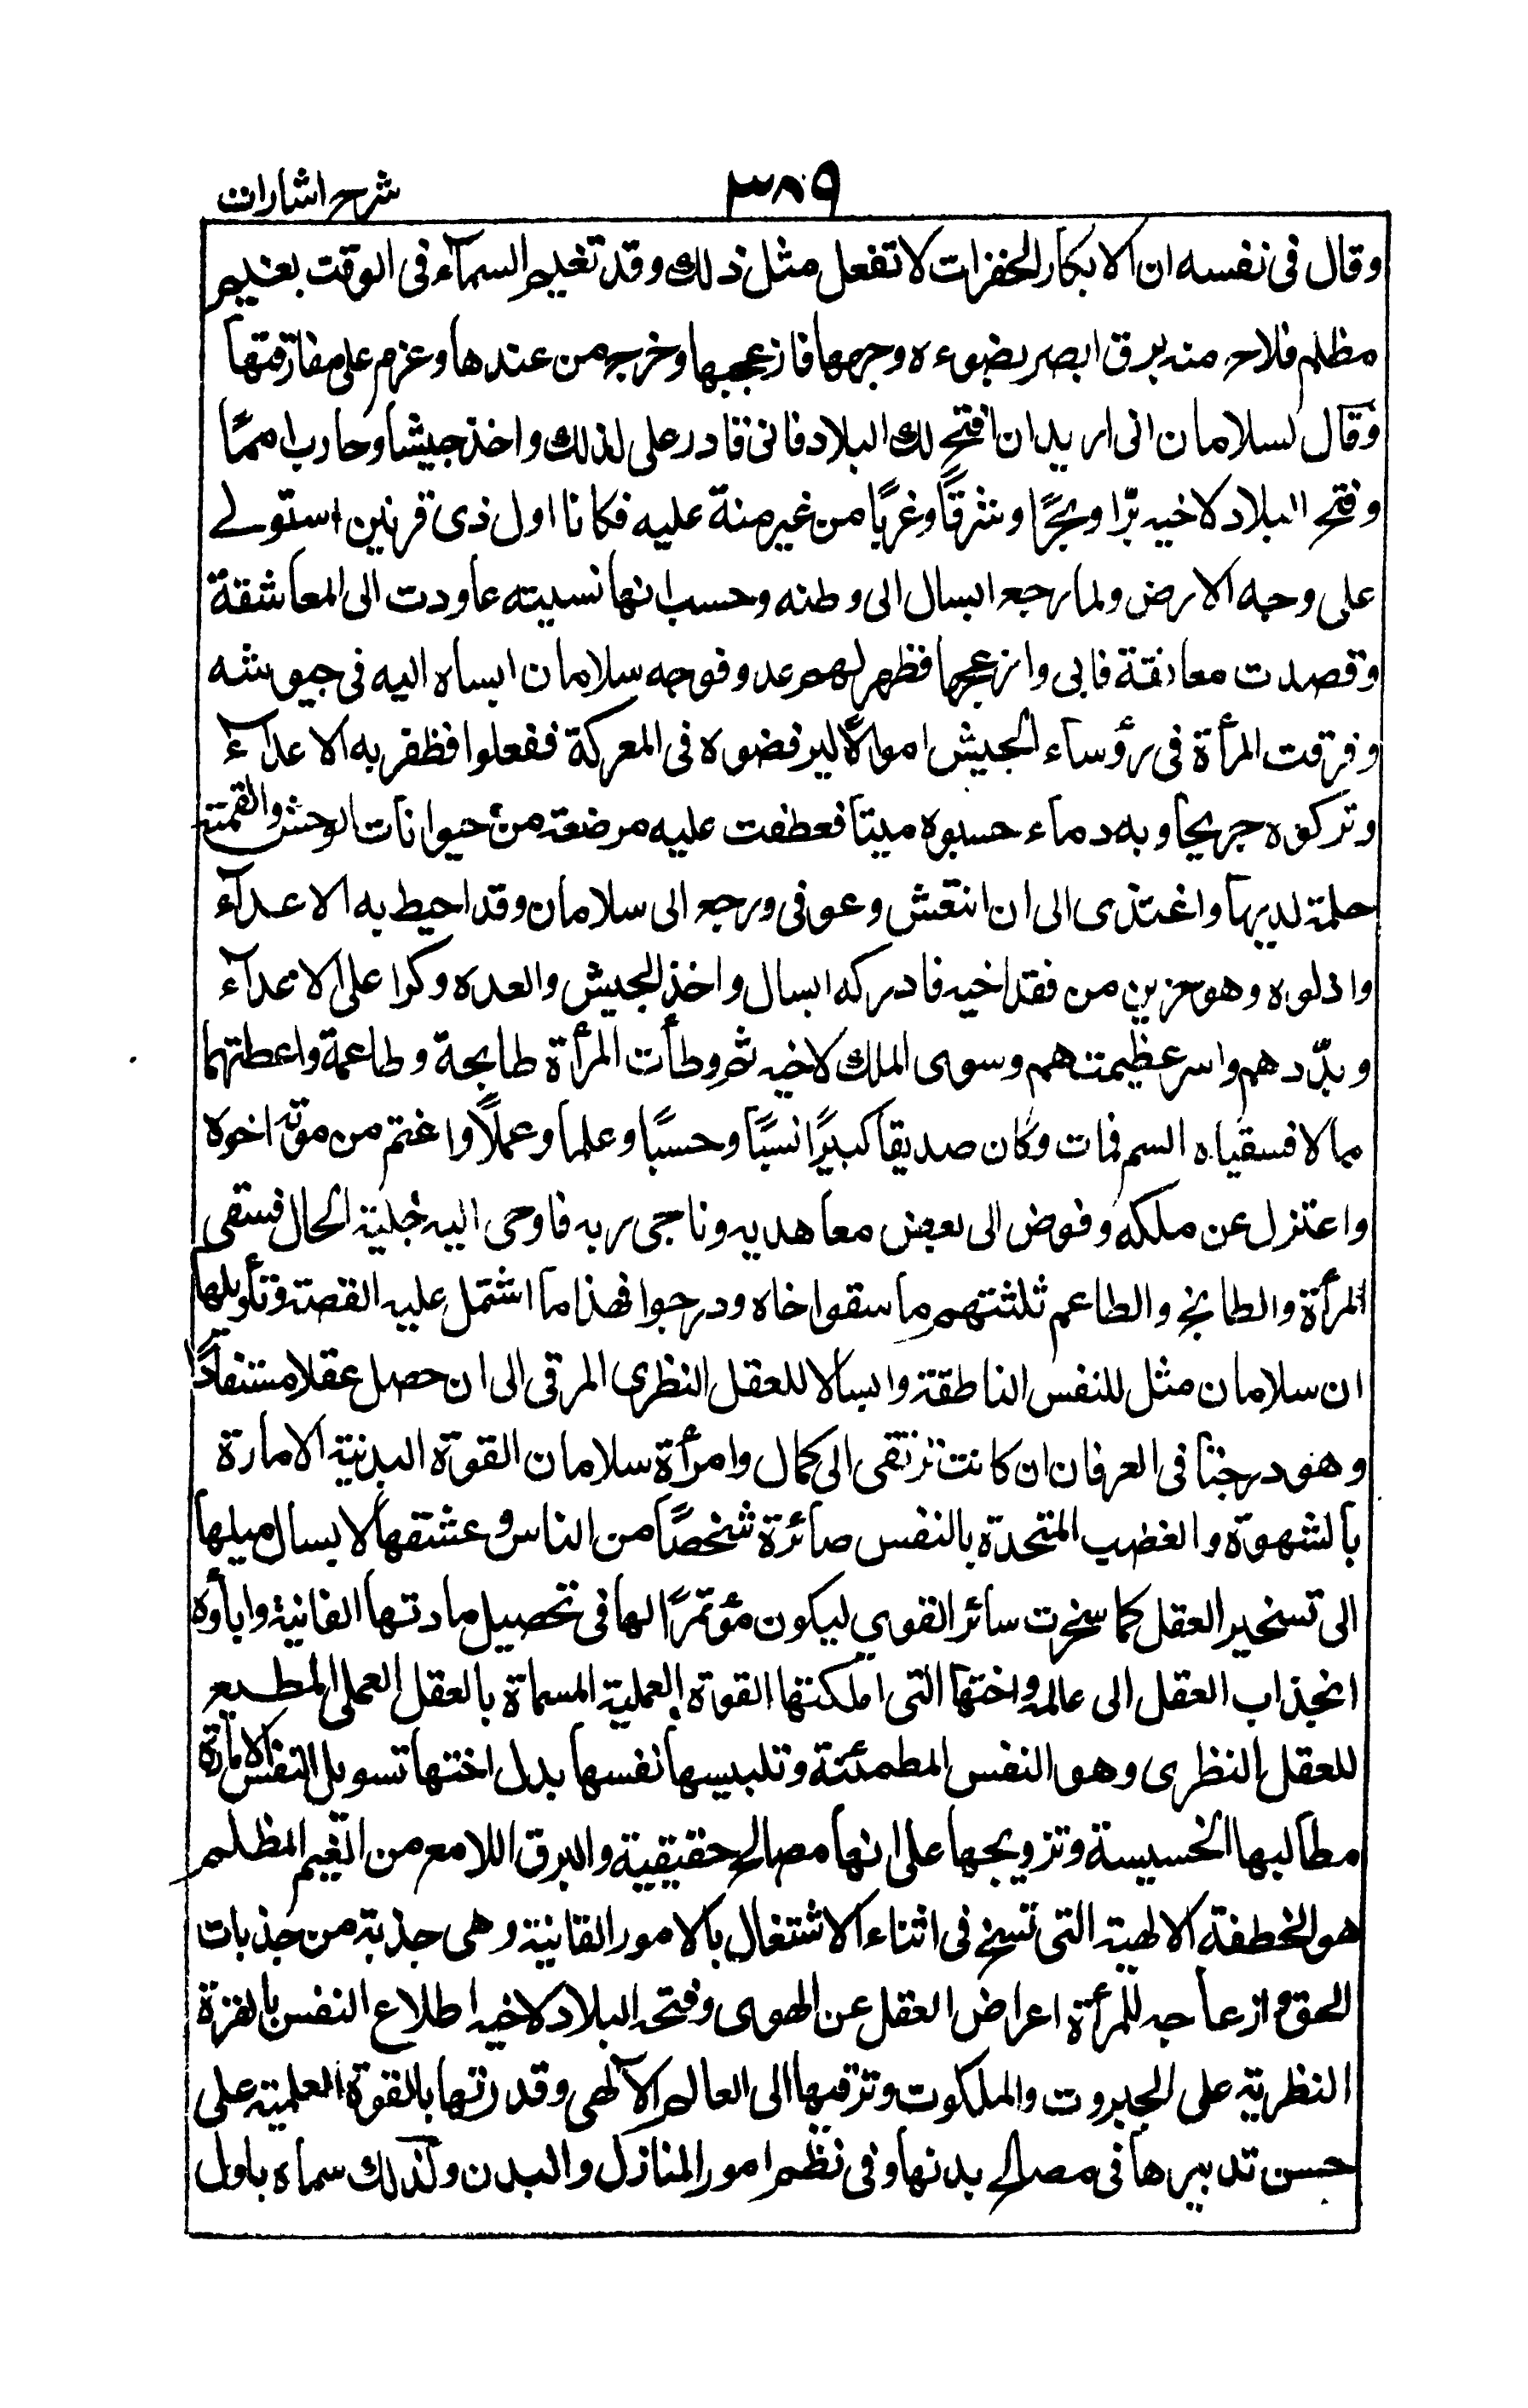 شرح اشارات ٣٨٩
وقال فى نفسه ان الابكار الخفرات لا تفعل مثل ذلك وقد تغيم السمآء فى الوقت بغيم
مظلم فلاح منه برق ابصر بضوءه وجهها فازعجها وخرج من عندها وعزم على مفارقتها
وقال لسلامان انى اريد ان افتح لك البلاد فانى قادر على لذلك واخذ جيشا وحارب امماً
وفتح البلاد لاخيه برّا وبحرًا وشرقًا وغربًا من غير منة عليه فكانا اول ذى قرنين استولے
على وجه الارض ولما رجع ابسال الى وطنه وحسب انها نسيته عاودت الى المعاشقة
وقصدت معانقة فابى وازعجها فظهر لهم عدو فوجه سلامان ابساه اليه فى جيوشه
وفرقت المرأة فى رؤساء الجيش اموالًا ليرفضوه فى المعركة ففعلوا فظفر به الاعدآء
وتركوه جريحا وبه دماء حسبوه ميتا فعطفت عليه مرضعة من حيوانات الوحش والقمته
حلمة لديها واغتذى الى ان انتعش وعوفى ورجع الى سلامان وقد احيط به الاعدآء
واذلوه وهو حزين من فقد اخيه فادركه ابسال واخذ الجيش والعده وكرا على الاعدآء
وبدّدهم واسر عظيمهم وسوى الملك لاخيه ثم وطأت المرأة طابخة وطاعمة واعطتهما
مالا فسقياه السم فمات وكان صديقا كبيرًا نسبًا وحسبًا وعلما وعملًا واغتم من موته اخوه
واعتزل عن ملكه وفوض الى بعض معاهديه وناجى ربه فاوحى اليه جلية الحال فسقى
المرأة والطابخ والطاعم ثلثتهم ما سقوا اخاه ودرجوا فهذا ما اشتمل عليه القصة وتأويلها
ان سلامان مثل للنفس الناطقة وابسالا للعقل النظرى المرقى الى ان حصل عقلا مستفادًا
وهو درجتا فى العرفان ان كانت ترتقى الى كمال وامرأة سلامان القوة البدنية الامارة
بالشهوة والغضب المتحدة بالنفس صائرة شخصًا من الناس وعشقها لابسال ميلها
الى تسخير العقل كما سخرت سائر القوي ليكون مؤتمرًا لها فى تحصيل مادتها الفانية واباؤه
انجذاب العقل الى عالمه واختها التى املكتها القوة العملية المسماة بالعقل العملى المطيع
للعقل النظرى وهو النفس المطمئنة وتلبيسها نفسها بدل اختها تسويل النفس الامارة
مطالبها الخسيسة وتزويجها على انها مصالح حقيقية والبرق اللامع من الغيم المظلم
هو الخطفة الالهية التى تسنح فى اثناء الاشتغال بالامور الفانية وهى جذبة من جذبات
الحق وازعاجه للمرأة اعراض العقل عن الهوى وفتحه البلاد لاخيه اطلاع النفس بالقوة
النظرية على الجبروت والملكوت وترقيها الى العالم الآلهى وقدرتها بالقوة العلمية على
حسن تدبيرها فى مصالح بدنها وفى نظم امور المنازل والبدن ولذلك سماه باول